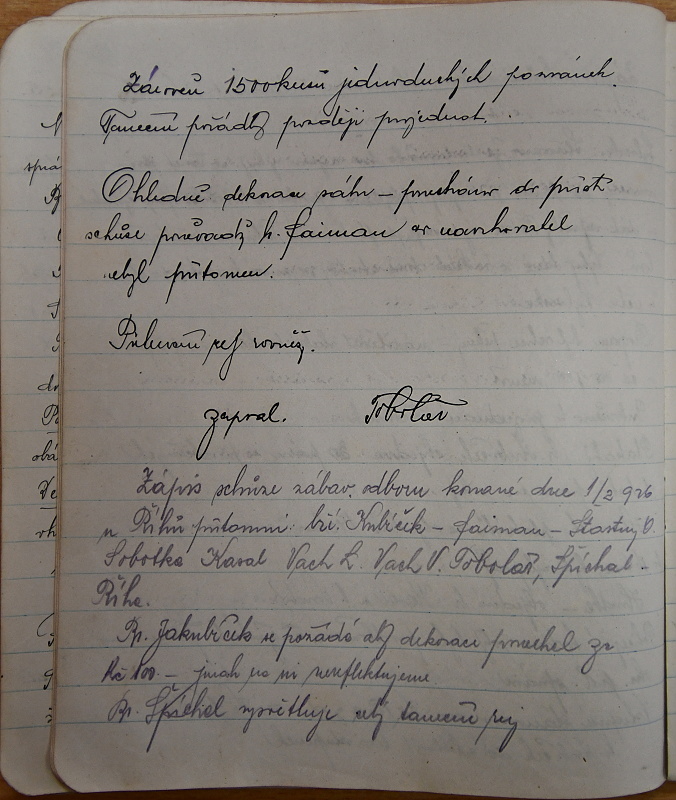 Zároveň 1500 kusů jednoduchých pozvánek.
Taneční pořádky později projednat.
Ohledně dekorace sálu – ponecháno do příští
schůze poněvadž h. Faiman co navrhovatel
nebyl přítomen.
rovněž.
zapsal. Tobolář
Zápis schůze zábav. odboru konané dne 1/2 926
u Říhů přítomni: bří. Kubíček – Faiman – Šťastný O.
Sobotka Kaval Vach L. Vach V. Tobolář, Spíchal –
Říha.
Br. Jakubíček se požádá aby dekoraci ponechal za
Kč 100.– jinak na ni nereflektujeme
Br. Špíchal vysvětluje celý taneční rej